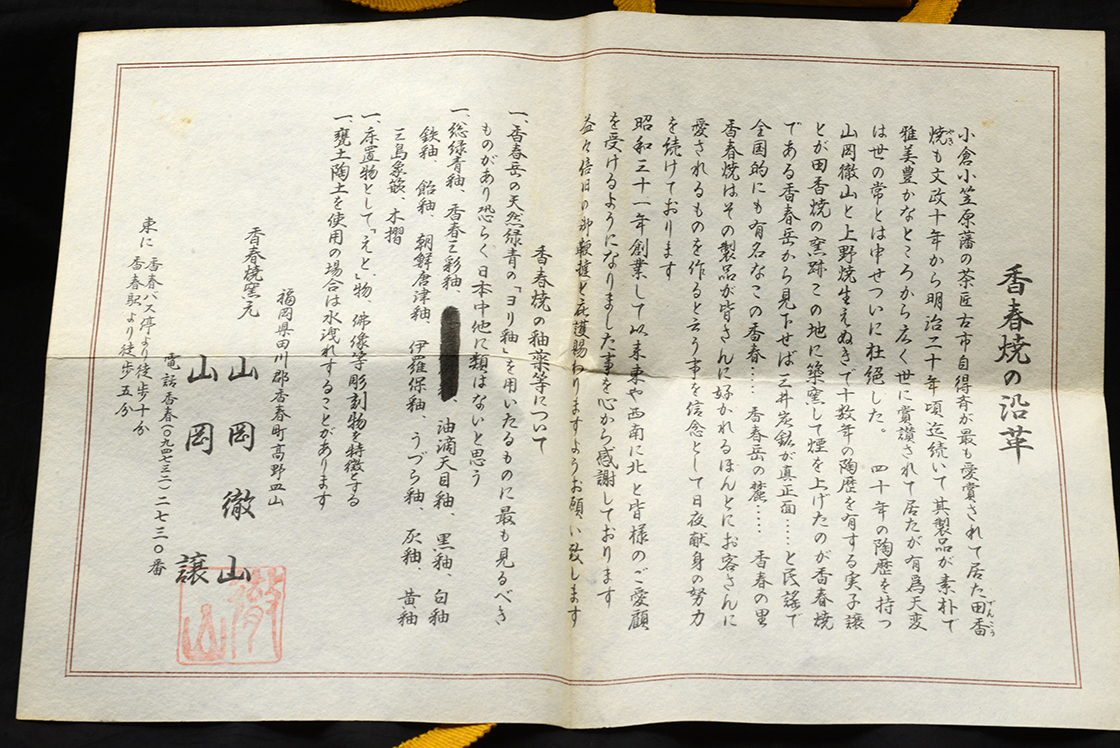 香春焼の沿革
小倉小笠原藩の茶匠古市自得斉が最も愛賞されて居た田香
でんこう
焼も文政十年から明治二十年頃迄続いて其製品が素朴で
やき
雅美豊かなところから広く世に賞讃されて居たが有為天変
は世の常とは申せついに杜絶した。 四十年の陶歴を持つ
山岡徹山と上野焼生えぬきで十数年の陶歴を有する実子譲
とが田香焼の窯跡この地に築窯して煙を上げたのが香春焼
である香春岳から見下せば三井炭鉱が真正面……と民謡で
全国的にも有名なこの香春…… 香春岳の麓…… 香春の里
香春焼はその製品が皆さんに好かれるほんとにお客さんに
愛されるものを作ると云う事を信念として日夜献身の努力
を続けております
昭和三十一年創業して以来東や西南に北と皆様のご愛顧
を受けるようになりました事を心から感謝しております
益々倍旧の御鞭撻と庇護賜わりますようお願い致します
香春焼の釉薬等について
一、香春岳の天然緑青の「ヨリ釉」を用いたるものに最も見るべき
ものがあり恐らく日本中他に類はないと思う
一、総緑青釉、香春三彩釉、 油滴天目釉、黒釉、白釉
鉄釉、飴釉、朝鮮唐津釉、伊羅保釉、うづら釉、灰釉、黄釉
三島象嵌、木摺
一、床置物として「えと」物、佛像等彫刻物を特徴とする
一、甕土陶土を使用の場合は水洩れすることがあります
福岡県田川郡香春町高野皿山
香春焼窯元 山岡徹山
山岡 譲
徹山
電話香春(〇九四七三)二七三〇番
東に 香春バス停より徒歩十分
香春駅より徒歩五分